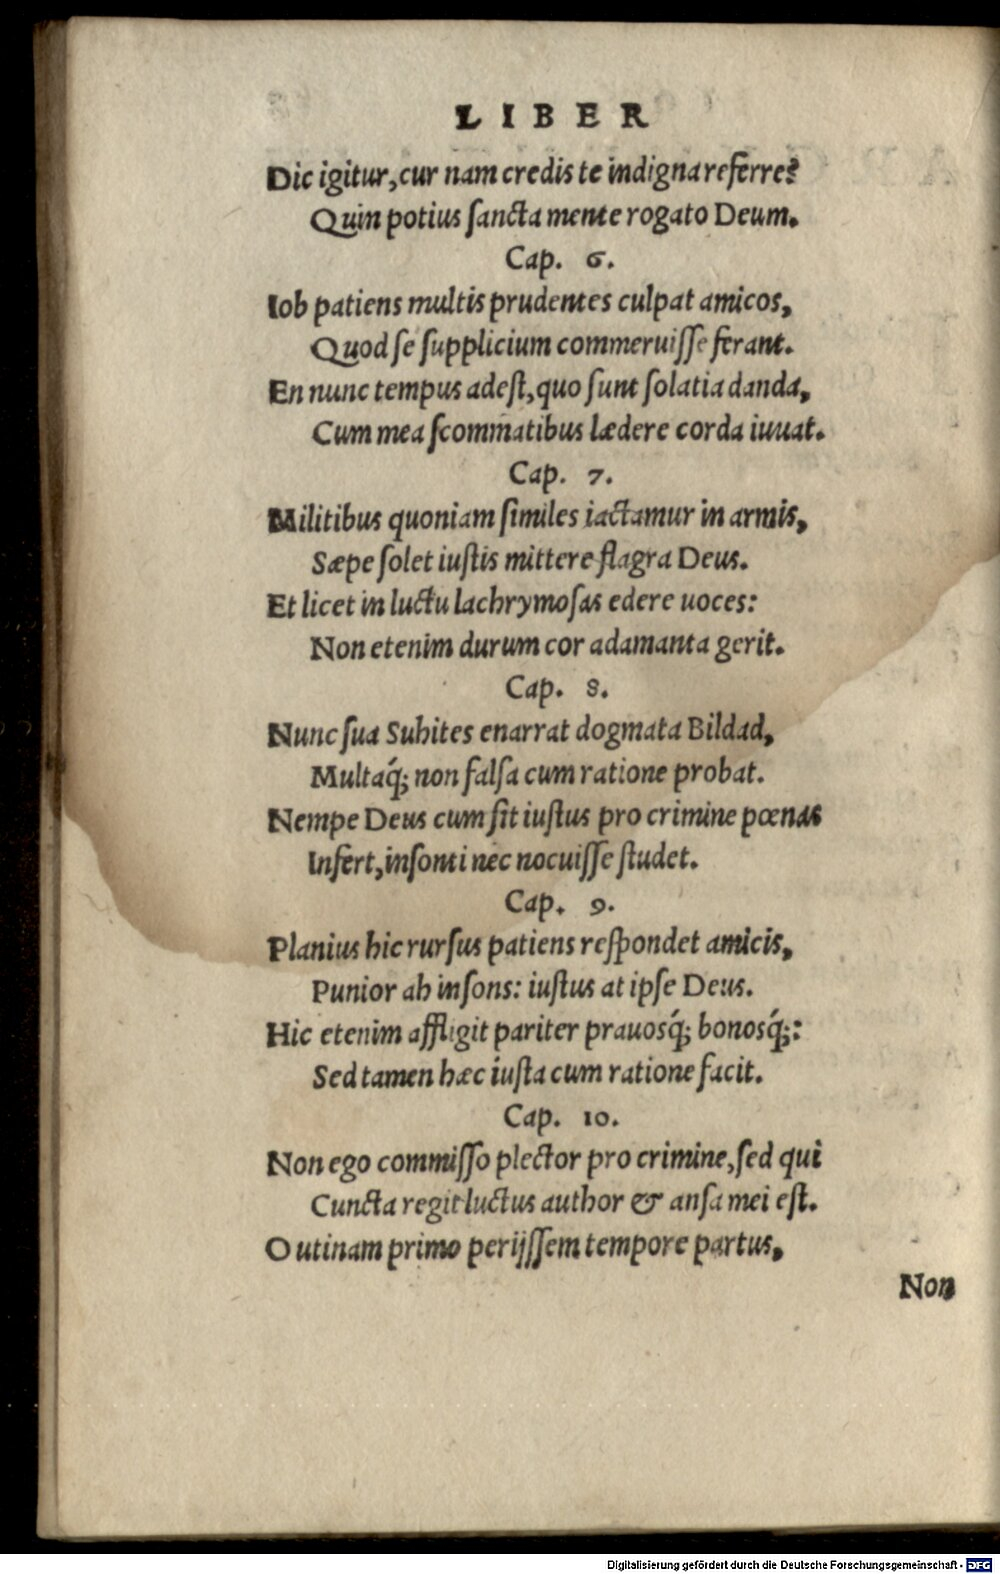 LIBER
Dic igitur, cur nam credis te indigna referre?
Quin potius ſancta mente rogato Deum.
Cap. 6.
Iob patiens multis prudentes culpat amicos,
Quod ſe ſupplicium commeruiſſe ferant.
En nunc tempus adeſt, quo ſunt ſolatia danda,
Cum mea ſcommatibus lædere corda iuuat.
Cap. 7.
Militibus quoniam ſimiles iactamur in armis,
Sæpe ſolet iuſtis mittere flagra Deus.
Et licet in luctu lachrymoſas edere uoces:
Non etenim durum cor adamanta gerit.
Cap. 8.
Nunc ſua Suhites enarrat dogmata Bildad,
Multaq́; non falſa cum ratione probat.
Nempe Deus cum ſit iuſtus pro crimine pœnas
Infert, inſonti nec nocuiſſe ſtudet.
Cap. 9.
Planius hic rurſus patiens reſpondet amicis,
Punior ah inſons: iuſtus at ipſe Deus.
Hic etenim affligit pariter prauosq́; bonosq́;:
Sed tamen hæc iuſta cum ratione facit.
Cap. 10.
Non ego commiſſo plector pro crimine, ſed qui
Cuncta regit luctus author & anſa mei eſt.
O utinam primo perijſſem tempore partus,
Non
Digitalisierung gefördert durch die Deutsche Forschungsgemeinschaft - DFG